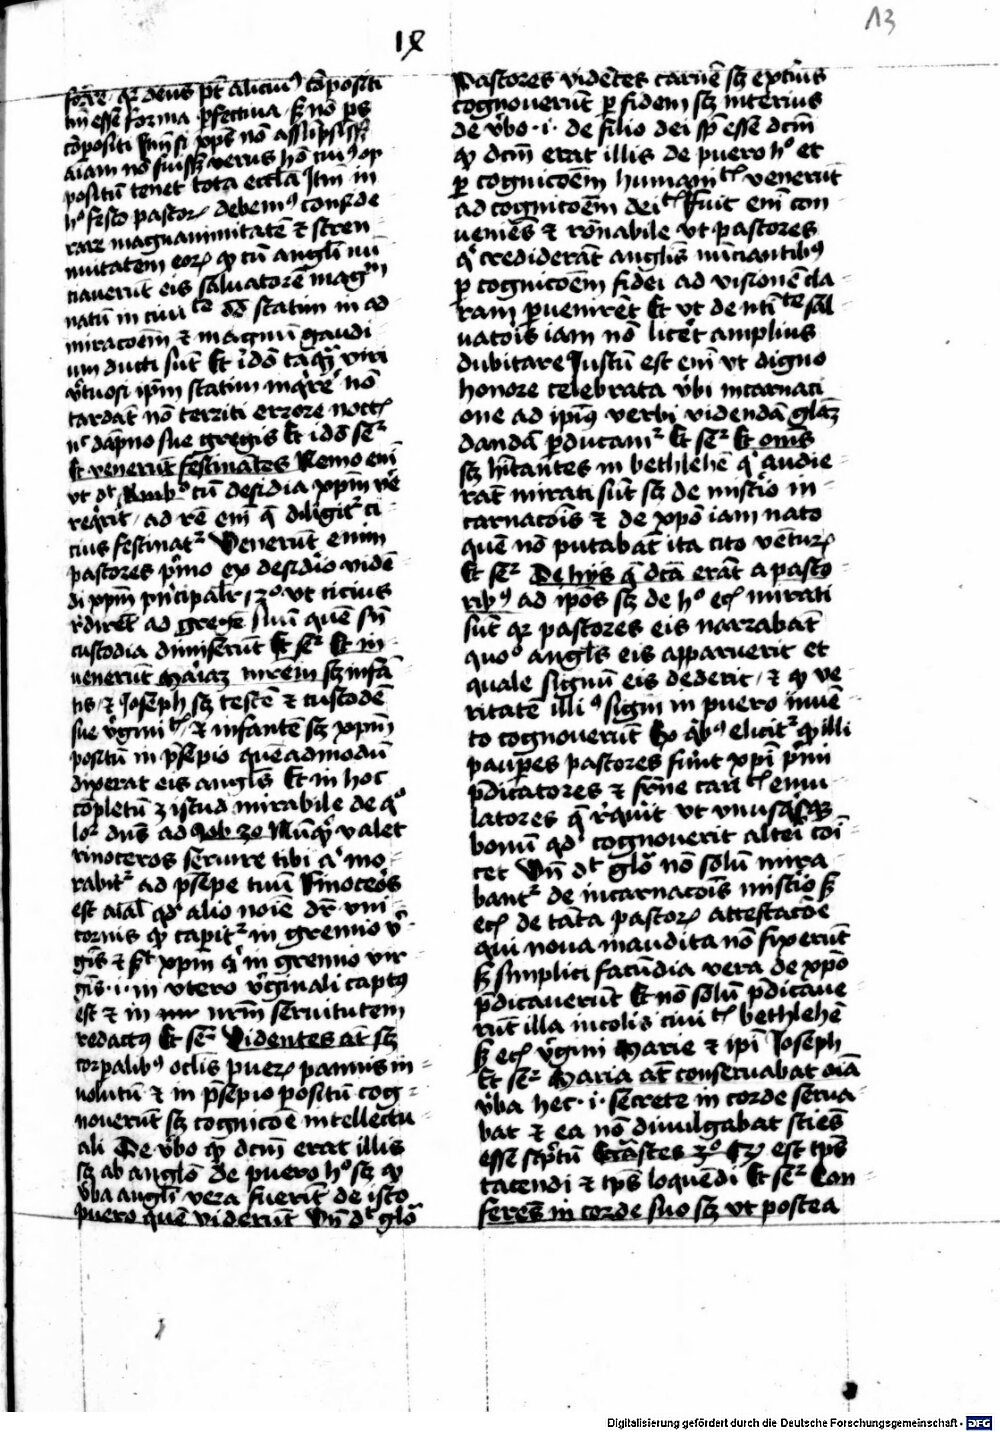 IX
13
forme qr deus pt alicuiꝰ cōpositi
tm̄ esse forma pfectiua sꝫ nō ps
cōpositi Itm̄ si xp̄s nō assūpsissꝫ
aīam nō fuissꝫ verus hō cuiꝰ op
positum tenet tota ecclā Itm in
hͦ festo pastorꝝ debemꝰ conside
rare magnanimitatē ⁊ stren
nuitatem eorꝝ qꝫ cū angli nū
ciauerūt eis saluatorē mag
natū in ciuite dd statim in ad
miracōem ⁊ magnū gaudi
um ducti sūt Et idō tāqꝫ viri
v̓tuosi ip̄m statim inqrē nō
tardāt nō territi errore noctꝭ
nc dāpno sue gregis Et idō seꝛ
Et venerūt festinātes Nemo em̄
vt dt Amb cū desidia xp̄m re
reqrit ad rē em̄ q̄ diligitꝛ ci
cius festinatꝛ Venerūt enim
pastores pmo ex desidio vidē
di xp̄m pncipalr 2o vt cicius
rdirēt ad gregē suū quē sn̄
custodia dimiserūt Et seꝛ Et in
uenerūt Maīaꝫ mrem sꝫ infā
tis ⁊ Joseph sꝫ testē ⁊ custodē
sue v̓ginitꝭ ⁊ infantē sꝫ xp̄m
positū in psepio quēadmodū
dixerat eis angls Et in hoc
cōpletū ꝫ istud mirabile de qͦ
loꝛ dn̄s ad Job 30 Nūqͥd valet
rinoceros seruire tibi a mo
rabitꝛ ad psepe tuū Rinoceros
est aīal qd alio noīe dr vni
cornis qꝫ capitꝛ in gremio v̓
gis ⁊ st xp̄m q in gremio vir
gis ·i· in vtero v̓ginali captꝰ
est ⁊ in nrm̄ seruitutem
redactꝰ Et seꝛ Videntes āt sꝫ
corpalibꝰ oclīs puerꝝ pannis in
uolutū ⁊ in psepio positū cog
nouerūt sꝫ cognicōe intellectu
ali De v̓bo qd dcm̄ erat illis
sꝫ ab anglō de puero hͦ sꝫ qꝫ
v̓ba angli vera fuerīt de isto
puero quē viderūt Vn̄ dt glo
Pastores videntes carnē sꝫ extius
cognouerūt p fidem sꝫ interius
de v̓bo ·i· de filio dei sp̄ esse dcm̄
qd dcm̄ erat illis de puero hͦ et
p cognicōem humanitꝭ venerūt
ad cognitōem deitꝭ Fuit em̄ con
ueniēs ⁊ rōnabile vt pastores
q crediderāt anglis nūciantibꝰ
p cognicōem fidei ad visionē cla
ram puenirēt Et vt de ntite sal
uatois iam nō licet amplius
dubitare Justū est em̄ vt digno
honore celebrata v̓bi incarnati
one ad ipiꝰ verbi videndā glaꝫ
dandā pducamꝛ Et seꝛ Et oms
sꝫ hītantes in bethlehē q audie
rāt mirati sūt sꝫ de mistio in
carnacōis ⁊ de xpō iam nato
quē nō putabāt ita cito vēturꝝ
Et seꝛ De hijs q̄ dcā erāt a pasto
ribꝰ ad ipōs sꝫ de hͦ ecꝭ mirati
sūt qr pastores eis narrabāt
quoͦ angls eis apparuerit et
quale signū eis dederit ⁊ qꝫ ve
ritatē illiꝰ signi in puero inuē
to cognouerūt Ex qbꝰ elicitꝛ qd illi
paupes pastores fūnt xpi pmi
pdicatores ⁊ frne caritꝭ emu
latores q̄ rqrit vt vnusqsqꝫ
bonum qd cognouerit altei cōi
cet Vn̄ dt glo nō solū mira
bantꝛ de incarnacōis mistio sꝫ
ecꝭ de tāta pastorꝝ attestacōe
qui noua inaudita nō fixerūt
sꝫ simplici facūdia vera de xpō
pdicauerūt Et nō solū pdicaue
rūt illa incolis ciuitꝭ bethlehē
sꝫ ecꝭ v̓gini Marie ⁊ ipi Joseph
Et seꝛ Maria āt conseruabat oīa
v̓ba hec ·i· secrete in corde serua
bat ⁊ ea nō diuulgabat sciēs
esse scptū Ecciāstes 3o Tp est tp̄s
tacendi ⁊ tp̄s loquēdi Et seꝛ Con
ferens in corde suo sꝫ vt postea
Digitalisierung gefördert durch die Deutsche Forschungsgemeinschaft - DFG